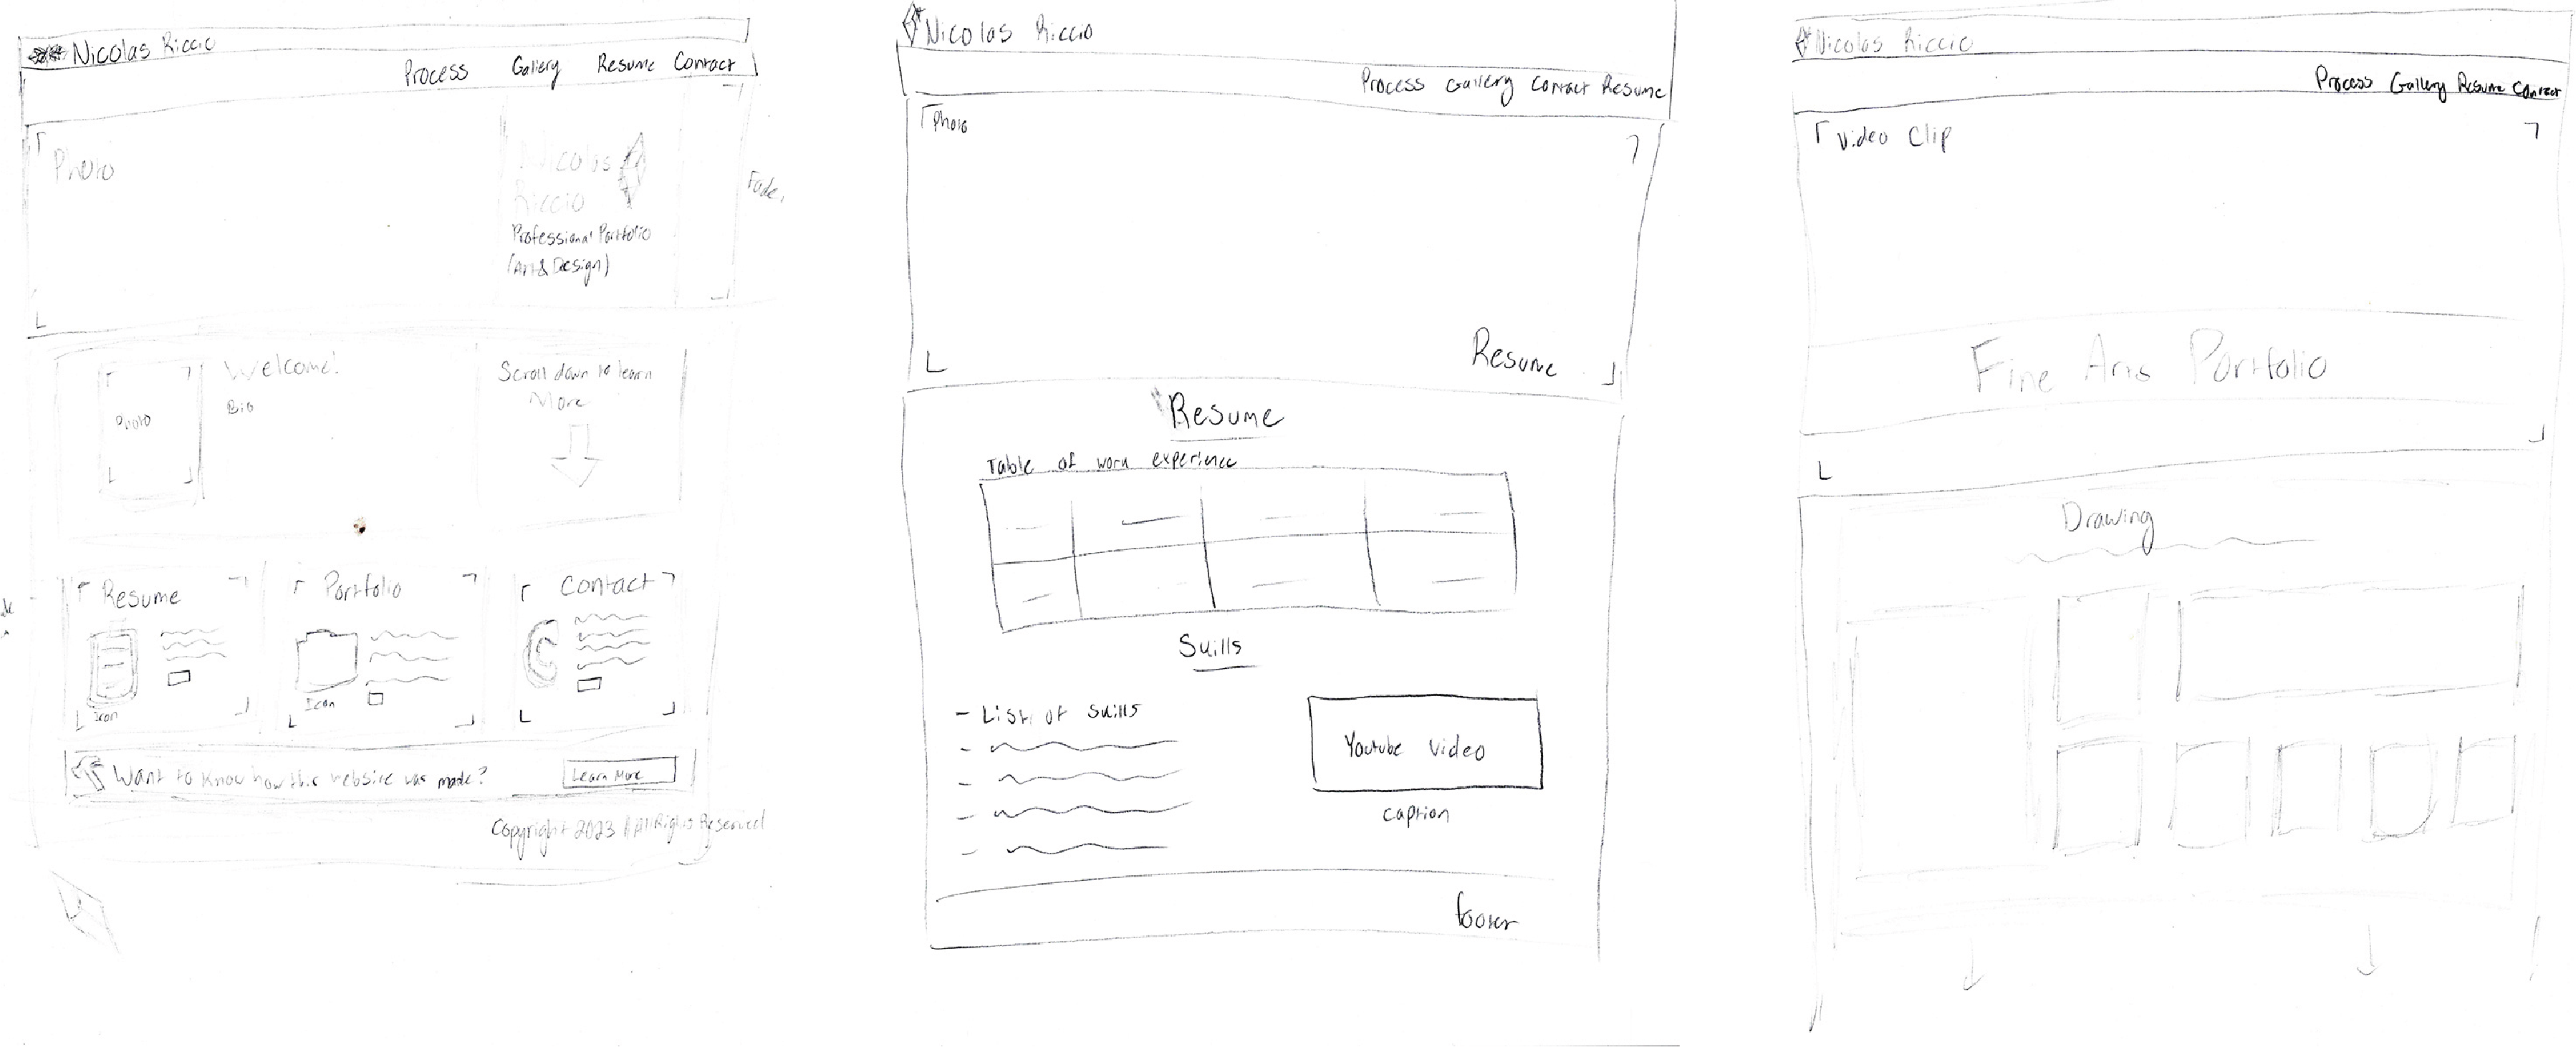 Nicolas Riccio
Process Gallery Resume Contact
Photo
Nicolas
Riccio
Professional Portfolio
(Art & Design)
Fade
Photo
Welcome!
Bio
Scroll down to learn
More
Resume
Icon
Portfolio
Icon
Contact
Want to know how this website was made?
Learn More
Copyright 2023 All Rights Reserved
Nicolas Riccio
Process Gallery Contact Resume
Photo
Resume
Resume
Table of work experience
Skills
- List of skills
Youtube video
caption
footer
Nicolas Riccio
Process Gallery Resume Contact
Video Clip
Fine Arts Portfolio
Drawing